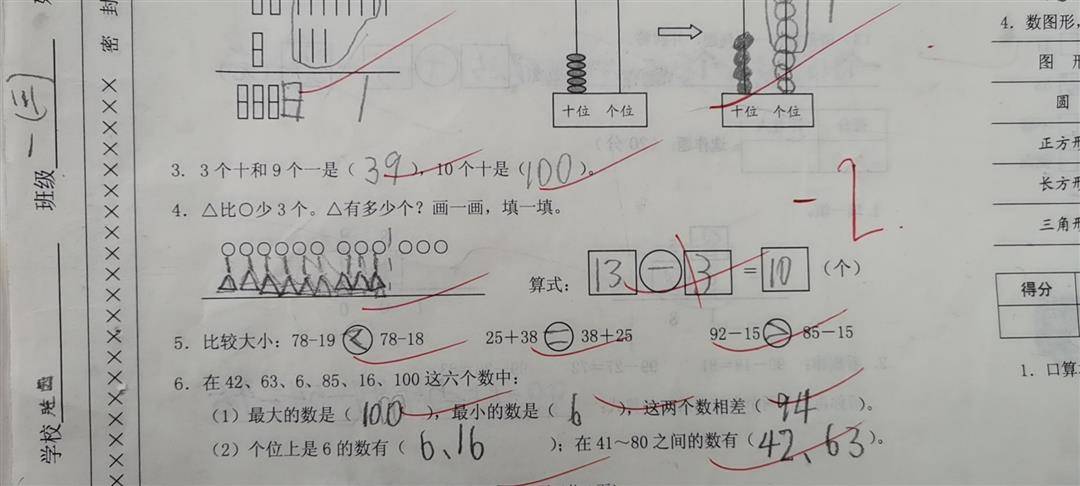 密 封
班级 一(三)
学校
十位 个位
十位 个位
3. 3个十和9个一是( 39 ),10个十是( 100 )。
4. △比○少3个。△有多少个?画一画,填一填。
算式: 13 － 3 = 10 (个)
-2
5. 比较大小:78-19 < 78-18 25+38 = 38+25 92-15 > 85-15
6. 在42、63、6、85、16、100这六个数中:
(1) 最大的数是( 100 ),最小的数是( 6 ),这两个数相差( 94 )。
(2) 个位上是6的数有( 6、16 );在41~80之间的数有( 42、63 )。
4. 数图形,
图 形
圆
正方形
长方形
三角形
得分
1. 口算